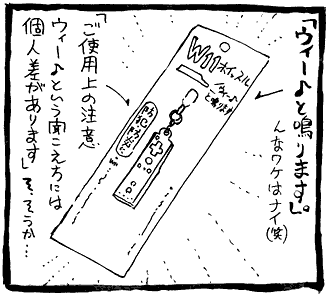 「ウィー♪と鳴ります」。
んなワケはナイ(笑)
W11ホイッスル
ウィー♪
と鳴ります
防犯に役立つ
「ご使用上の注意
ウィー♪という聞こえ方には
個人差があります」そ、そうか…